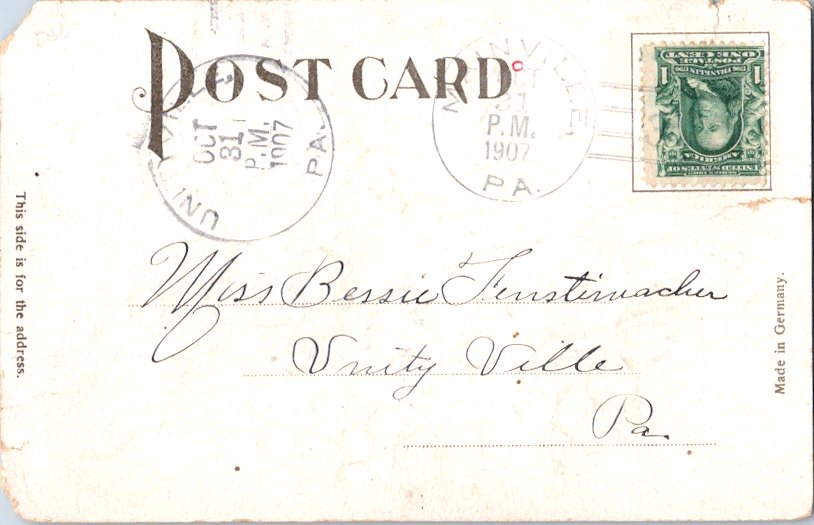 POST CARD
UNITYVILLE
OCT
31
P.M.
1907
PA.
MAINVILLE,
OCT
31
P.M.
1907
PA.
SERIES 1902
UNITED STATES OF
AMERICA
1706 FRANKLIN 1790
POSTAGE
ONE CENT
1
1
This side is for the address.
Miss Bessie Fenstimacher
Unity Ville
Pa.
Made in Germany.